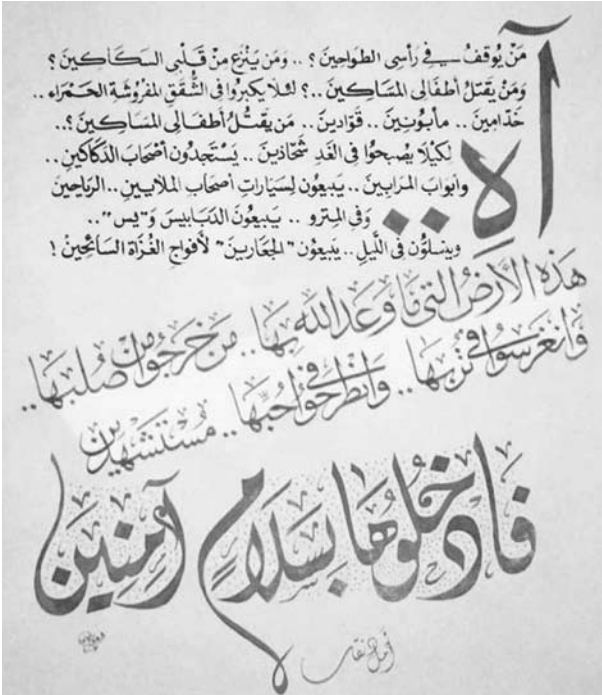 آهِ ..
مَنْ يُوقفُ في رَأسِي الطواحينْ ؟ .. وَمَن يَنْزع مِنْ قَلْبي السَكَاكينْ ؟
وَمَنْ يَقتلُ أطفَالي المسَاكينْ ..؟ لئلا يكبرُوا في الشُّقَقِ المفرُوشةِ الحَمْرَاء ..
خدّامينْ .. مأبُونينْ .. قوّادينْ .. مَن يقتُلُ أطفَالي المسَاكينْ ؟..
لكيْلا يُصبحُوا في الغَدِ شحّاذينْ .. يَسْتَجدُون أصْحَابَ الدَكاكينِ ..
وأبوَابَ المرَابينْ .. يَبيعُون لِسيّاراتِ أصحَابِ الملايينِ .. الرياحينْ
وَفي المِترو .. يَبيعُونَ الدَبابيسَ وَ"يس" ..
وينسلّون في اللّيلِ .. يبيعُون "الجعَارينَ" لأفواجِ الغُزاة السَائحينْ !
هَذهِ الأرضُ التي مَا وَعَد الله بهَا .. مَن خَرجُوا مِن صُلبهَا ..
وَانغَرَسُوا في تُربهَا .. وَانطَرَحُوا في حُبّهَا .. مُسْتَشهِدين
فَادخُلوهَا بسَلامٍ آمِنِين
أمل دنقل